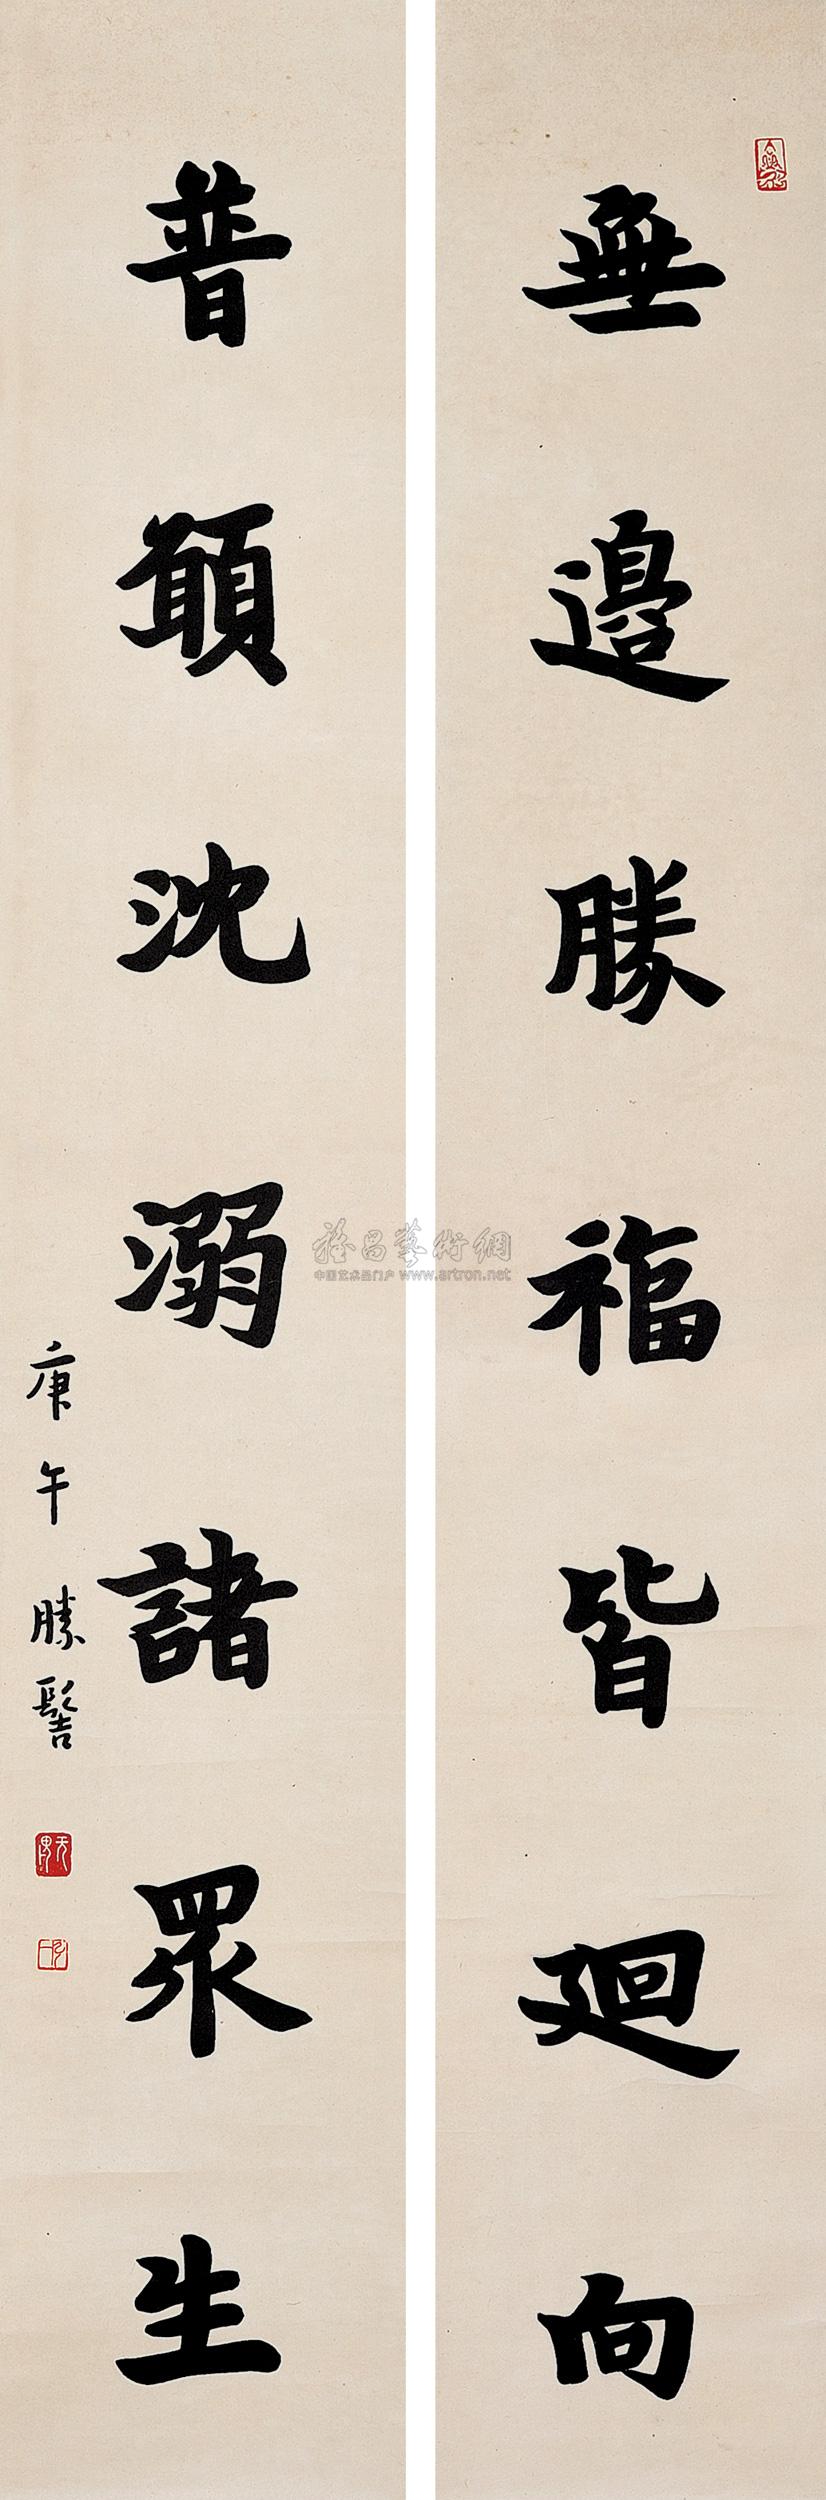 無邊勝福皆迴向
普願沈溺諸眾生
庚午 勝髻
雅昌藝術網
中国艺术品门户 www.artron.net